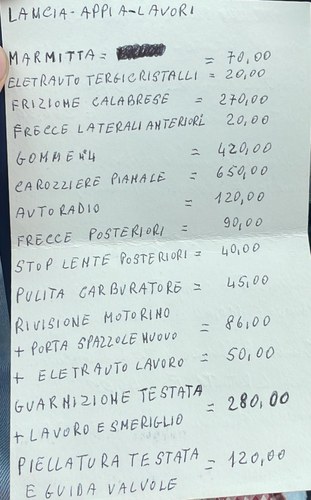 LAMCIA-APPIA-LAVORI
MARMITTA = = 70,00
ELETRAUTO TERGICRISTALLI = 20,00
FRIZIOME CALABRESE = 270,00
FRECCE LATERALI AMTERIORI 20,00
GOMME N°4 = 420,00
CAROZZIERE PIAMALE = 650,00
AUTORADIO = 120,00
FRECCE POSTERIORI = 90,00
STOP LEMTE POSTERIORI = 40,00
PULITA CARBURATORE = 45,00
RIVISIOME MOTORIMO
+ PORTA SPAZZOLE MUOVO = 86,00
+ ELETRAUTO LAVORO = 50,00
GUARMIZIOME TESTATA
+ LAVORO E SMERIGLIO = 280,00
PIELLATURA TESTATA = 120,00
E GUIDA VALVOLE